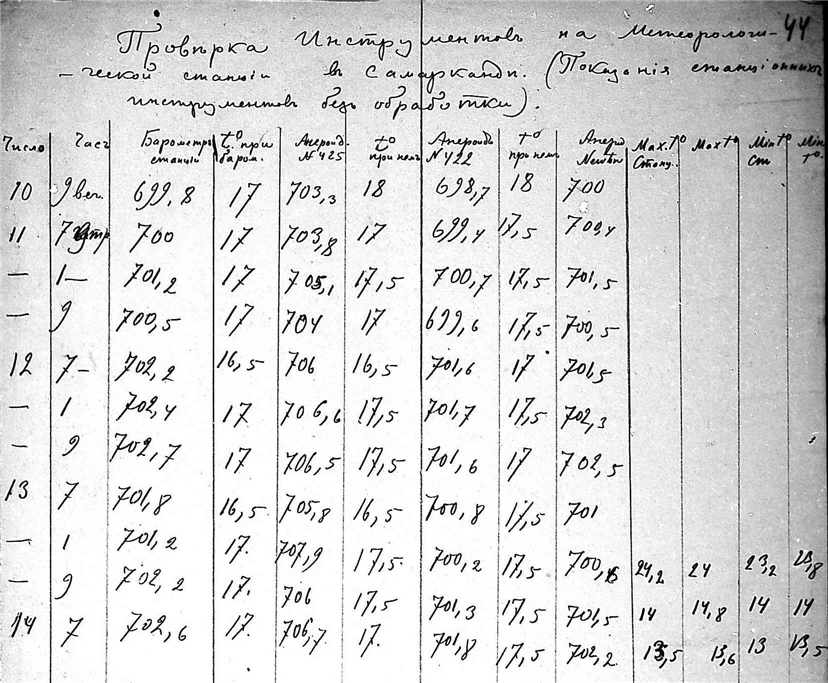 44
Провѣрка Инструментовъ на Метеорологи-
-ческой станціи въ Самаркандѣ. (Показанія станціонныхъ
инструментовъ безъ обработки).
Число Часъ Барометръ станціи t° при баром. Анероид. № 425 t° при немъ Анероидъ N 422 t° при немъ Анеро Newton Max. t° Станц. Max t° Min t° Cm Min t°
10 9 веч. 699,8 17 703,3 18 698,7 18 700
11 7 утр 700 17 703,8 17 699,4 17,5 700,4
— 1— 701,2 17 705,1 17,5 700,7 17,5 701,5
— 9 700,5 17 704 17 699,6 17,5 700,5
12 7— 702,2 16,5 706 16,5 701,6 17 701,5
— 1 702,4 17 706,6 17,5 701,7 17,5 702,3
— 9 702,7 17 706,5 17,5 701,6 17 702,5
13 7 701,8 16,5 705,8 16,5 700,8 17,5 701
— 1 701,2 17. 707,9 17,5. 700,2 17,5 24,2 24 23,2 23,8
— 9 702,2 17. 706 17,5 701,3 17,5 701,5 14 14,8 14 14
14 7 702,6 17. 706,7 17. 701,8 17,5 702,2 13,5 13,6 13 13,5